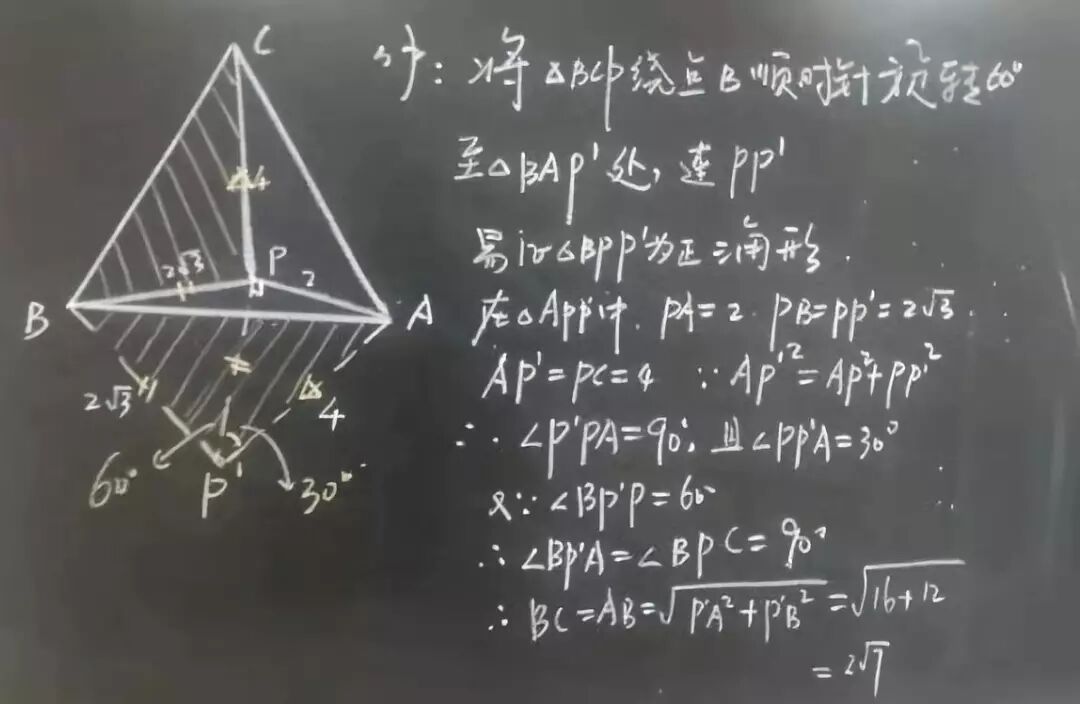 C
B
A
P
P'
4
2√3
2
2√3
4
60°
30°
: 将△BCP绕点B顺时针旋转60°
至△BAP'处, 连PP'
易证△BPP'为正三角形.
在△APP'中. PA=2. PB=PP'=2√3.
AP'=PC=4 ∵AP'²=AP²+PP'²
∴∠P'PA=90°, 且∠PP'A=30°
又∵∠BP'P=60°
∴∠BP'A=∠BPC=90°
∴BC=AB=√P'A²+P'B²=√16+12
=2√7